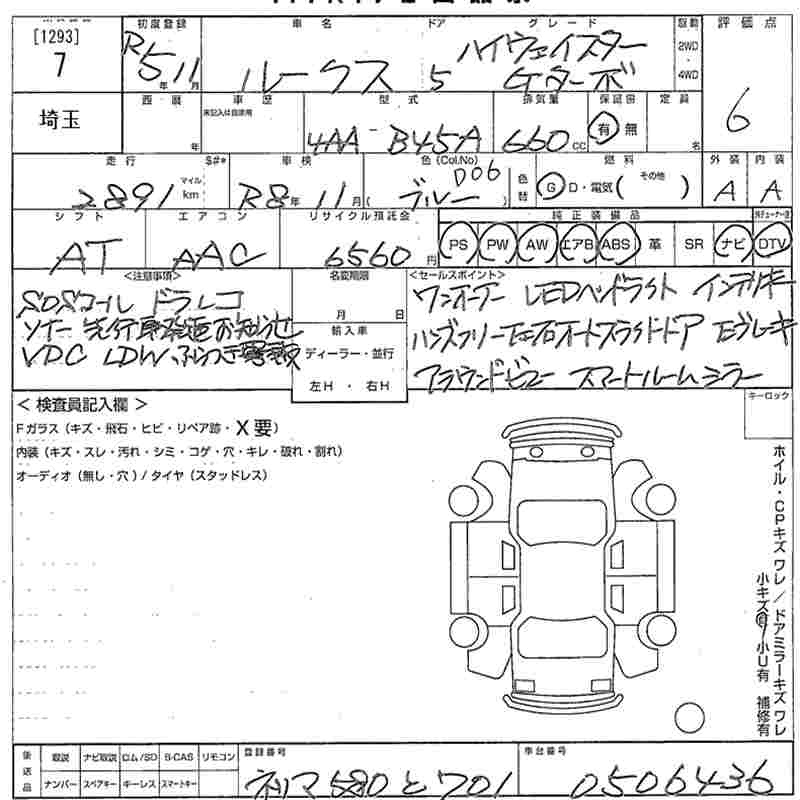 [1293]
7
初度登録
R5 11
年 月
車名
ルークス
ドア
5
グレード
ハイウェイスター
Gターボ
駆動
2WD
4WD
評価点
6
埼玉
西暦
年
車歴
未記入は自家用
型式
4AA-B45A
排気量
660 cc
保証書
有 無
定員
名
走行
2891
マイル
km
S#*
車検
R8年11月
色(Col.No)
D06
(ブルー)
色替
燃料
G・D・電気( その他 )
外装
A
内装
A
シフト
AT
エアコン
AAC
リサイクル預託金
6560円
純正装備品
PS PW AW エアB ABS 革 SR ナビ DTV
<注意事項>
SOSコール ドラレコ
ソナー 先行車発進お知らせ
VDC LDW ふらつき警報
名変期限
月 日
輸入車
ディーラー・並行
左H ・ 右H
<セールスポイント>
ワンオーナー LEDヘッドライト インテリキー
ハンズフリー左右オートスライドドア Eブレーキ
アラウンドビュー スマートルームミラー
< 検査員記入欄 >
Fガラス(キズ・飛石・ヒビ・リペア跡・X要)
内装(キズ・スレ・汚れ・シミ・コゲ・穴・キレ・破れ・割れ)
オーディオ(無し・穴)/タイヤ(スタッドレス)
キーロック
ホイル・CPキズ ワレ / ドアミラーキズ ワレ
小キズ有 / 小U有 補修有
後送品
取説 ナビ取説 ロム/SD B-CAS リモコン
ナンバー スペアキー キーレス スマートキー
登録番号
ネリマ 580 と 701
車台番号
0506436